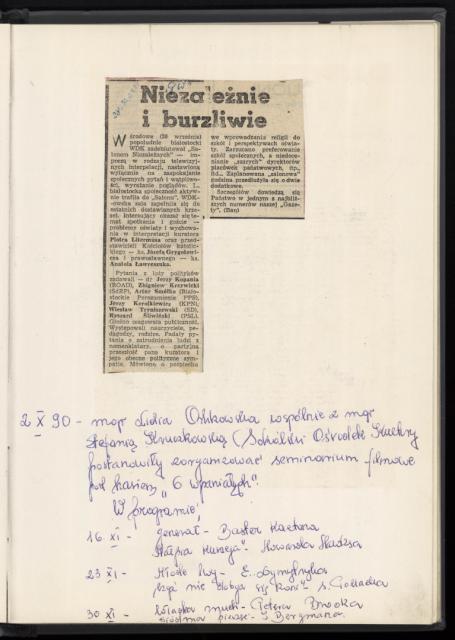 Niezależnie
i burzliwie
W środowe (26 września)
popołudnie białostocki
WDK zadebiutował „Sa-
lonem Niezależnych” — im-
prezą w rodzaju telewizyj-
nych interpelacji, nastawioną
wyłącznie na zaspokajanie
społecznych pytań i wątpliwo-
ści, wyrażanie poglądów. I...
białostocka społeczność aktyw-
nie trafiła do „Salonu”. WDK-
-owska sala zapełniła się do
ostatnich dostawianych krze-
seł. Interesujący okazał się te-
mat spotkania i goście —
problemy oświaty i wychowa-
nia w interpretacji kuratora
Piotra Litermusa oraz przed-
stawicieli Kościołów katolic-
kiego — ks. Józefa Grygotowi-
cza i prawosławnego — ks.
Anatola Ławreszuka.
Pytania z loży polityków
zadawali — dr Jerzy Kopania
(ROAD), Zbigniew Krzywicki
(SdRP), Artur Smółko (Biało-
stockie Porozumienie PPS),
Jerzy Korolkiewicz (KPN),
Wiesław Tyraturzewski (SD),
Ryszard Śliwiński (PSL).
Głośno reagowała publiczność.
Występowali nauczyciele, pe-
dagodzy, rodzice. Padały py-
tania o zatrudnienie ludzi z
nomenklatury, o partyjną
przeszłość pana kuratora i
jego obecne polityczne sym-
patie. Mówiono o pośpiechu
we wprowadzaniu religii do
szkół i perspektywach oświa-
ty. Zarzucano preferowanie
szkół społecznych, a niedoce-
nianie „szarych” dyrektorów
placówek państwowych, itp.,
itd.. Zaplanowana „salonowa”
godzina przedłużyła się o dwie
dodatkowe.
Szczegółów dowiedzą się
Państwo w jednym z najbliż-
szych numerów naszej „Gaze-
ty”. (Ban)
2 X 90 - mgr Lidia Ostkowska wspólnie z mgr
Stefanią Hruszkowską (Sokólski Ośrodek Kultury
postanowiły zorganizować seminarium filmowe
pod hasłem „6 wspaniałych”.
W programie:
16 XI - Generał - Buster Keatona
23 XI - Młode lwy - E. Dymytryka
Czyż nie dobija się koni - S. Pollacka
30 XI - Władca much - Petera Brooka
siódma pieczęć - I. Bergmana